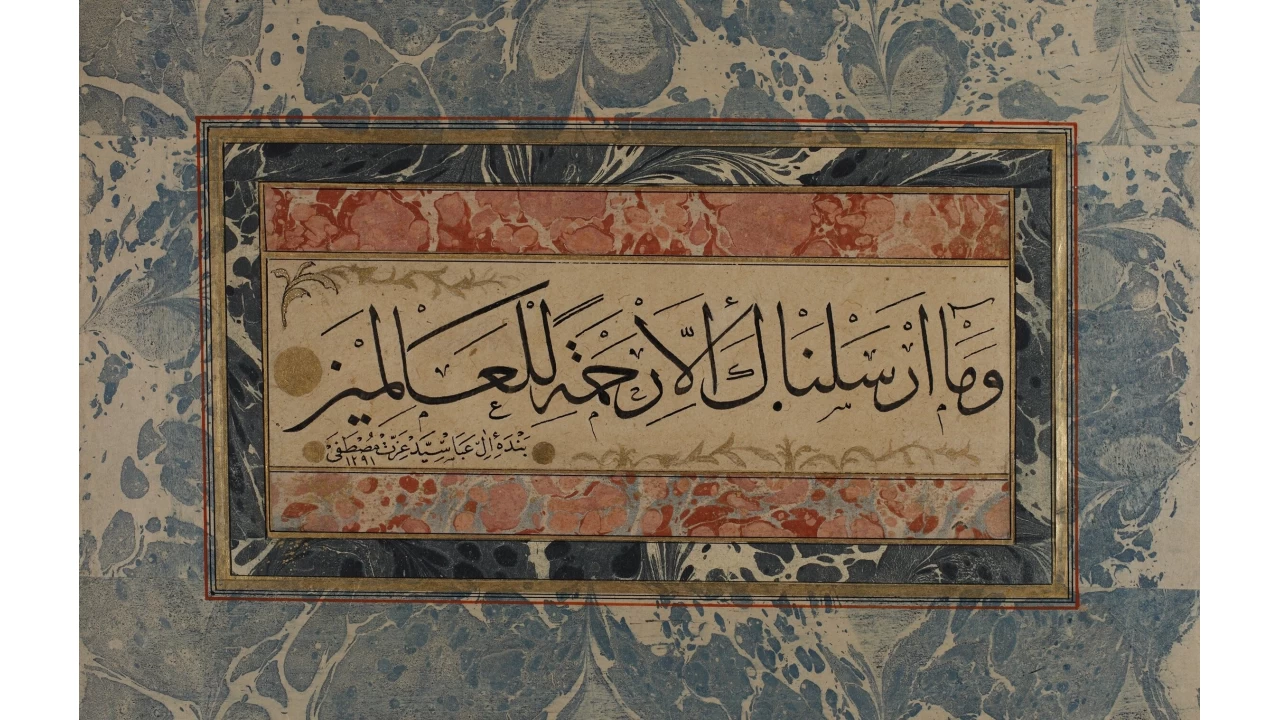 وَمَٓا اَرْسَلْنَاكَ اِلَّا رَحْمَةً لِلْعَالَمِينَ
بَنْدَهِٔ اٰلِ عَبَا سَيِّدْ عِزَّتْ مُصْطَفَى
١٢٩١